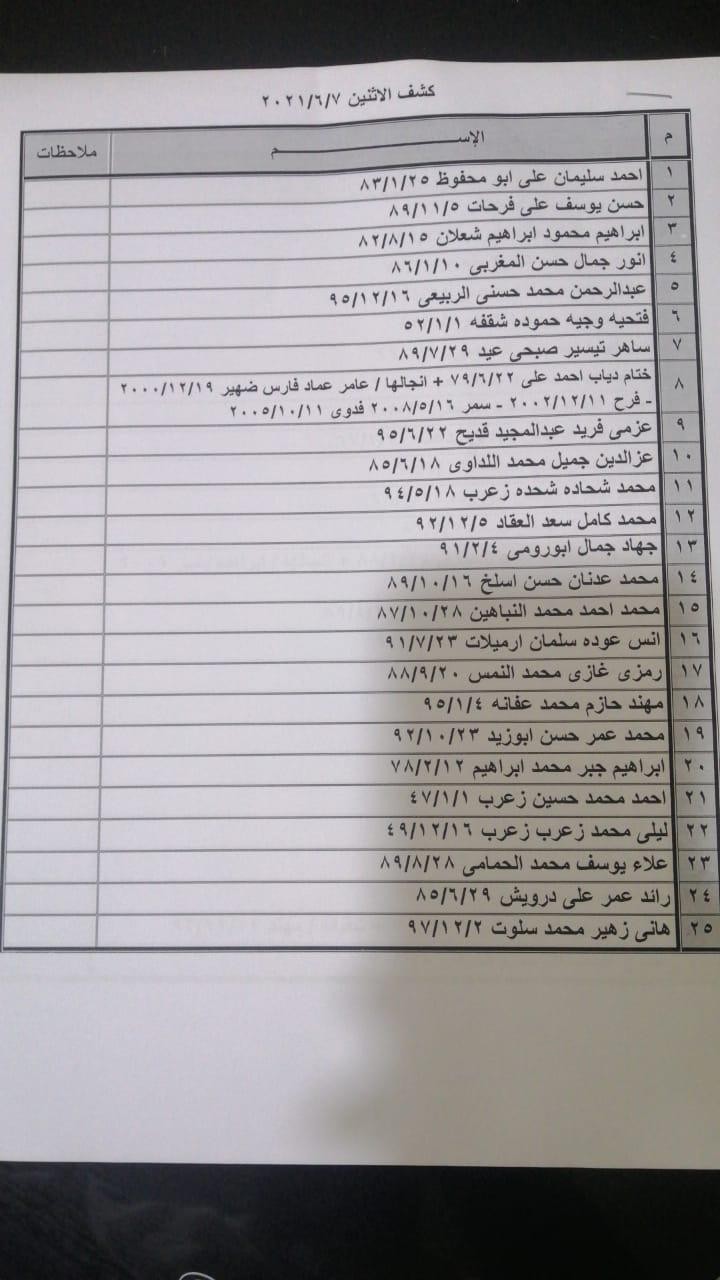 كشف الاثنين ٢٠٢١/٦/٧
م الإســـــــــم ملاحظات
١ احمد سليمان على ابو محفوظ ٨٣/١/٢٥
٢ حسن يوسف على فرحات ٨٩/١١/٥
٣ ابراهيم محمود ابراهيم شعلان ٨٢/٨/١٥
٤ انور جمال حسن المغربى ٨٦/١/١٠
٥ عبدالرحمن محمد حسنى الربيعى ٩٥/١٢/١٦
٦ فتحيه وجيه حموده شقفه ٥٢/١/١
٧ ساهر تيسير صبحى عيد ٨٩/٧/٢٩
٨ ختام دياب احمد على ٧٩/٦/٢٢ + انجالها / عامر عماد فارس ضهير ٢٠٠٠/١٢/١٩
- فرح ٢٠٠٢/١٢/١١ - سمر ٢٠٠٨/٥/١٦ فدوى ٢٠٠٥/١٠/١١
٩ عزمى فريد عبدالمجيد قديح ٩٥/٦/٢٢
١٠ عزالدين جميل محمد اللداوى ٨٥/٦/١٨
١١ محمد شحاده شحده زعرب ٩٤/٥/١٨
١٢ محمد كامل سعد العقاد ٩٢/١٢/٥
١٣ جهاد جمال ابورومى ٩١/٢/٤
١٤ محمد عدنان حسن اسلخ ٨٩/١٠/١٦
١٥ محمد احمد محمد النباهين ٨٧/١٠/٢٨
١٦ انس عوده سلمان ارميلات ٩١/٧/٢٣
١٧ رمزى غازى محمد النمس ٨٨/٩/٢٠
١٨ مهند حازم محمد عفانه ٩٥/١/٤
١٩ محمد عمر حسن ابوزيد ٩٢/١٠/٢٣
٢٠ ابراهيم جبر محمد ابراهيم ٧٨/٢/١٢
٢١ احمد محمد حسين زعرب ٤٧/١/١
٢٢ ليلى محمد زعرب زعرب ٤٩/١٢/١٦
٢٣ علاء يوسف محمد الحمامى ٨٩/٨/٢٨
٢٤ رائد عمر على درويش ٨٥/٦/٢٩
٢٥ هانى زهير محمد سلوت ٩٧/١٢/٢